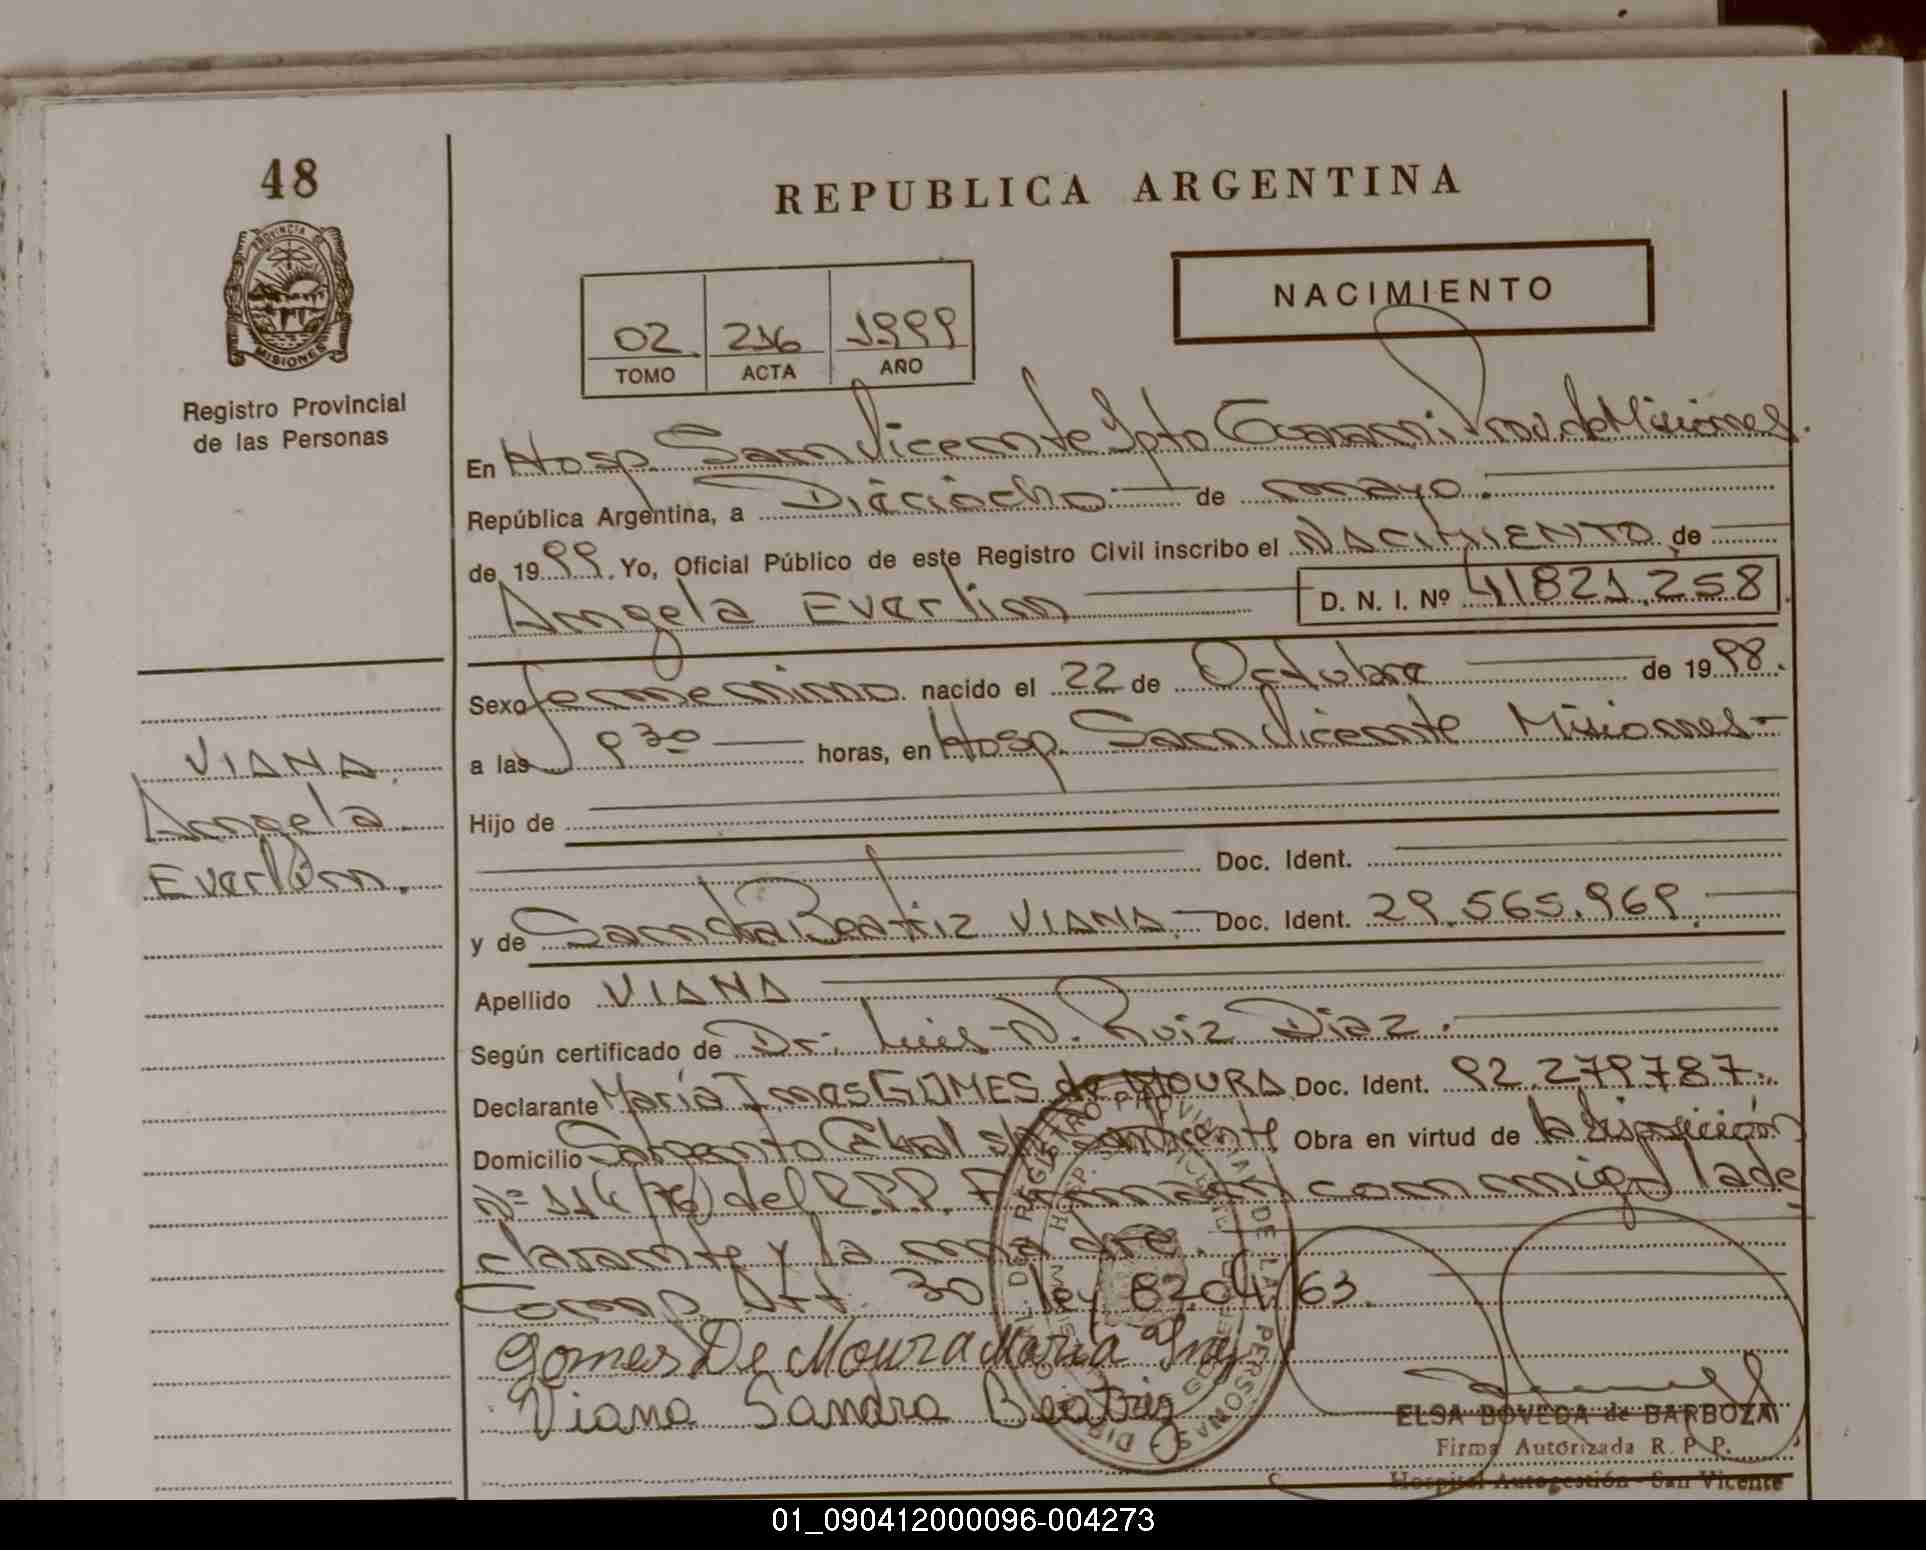 48
REPUBLICA ARGENTINA
PROVINCIA DE
MISIONES
NACIMIENTO
02 216 1999
TOMO ACTA AÑO
Registro Provincial
de las Personas
En Hosp. San Vicente Dpto Guarani Prov. de Misiones.
República Argentina, a Dieciocho de mayo.
de 1999. Yo, Oficial Público de este Registro Civil inscribo el NACIMIENTO de
Angela Everlin D. N. I. Nº 41821.258
Sexo femenino nacido el 22 de Octubre de 1998.
a las 9 30 horas, en Hosp. San Vicente Misiones-
VIANA.
Angela
Everlin.
Hijo de
Doc. Ident.
y de Sandra Beatriz VIANA.- Doc. Ident. 29.565.969.
Apellido VIANA
Según certificado de Dr. Luis N. Ruiz Diaz.
Declarante María Ines GOMES de MOURA Doc. Ident. 92.279787.
Domicilio Sargento Cabral s/n San Vicente Obra en virtud de la disposición
Nº 114/76) del R.P.P. Firman conmigo la de
clarante y la madre.
Comp. Art. 30 ley 8204/63.
Gomes De Moura Maria Ines
Viana Sandra Beatriz
DIR. GRAL. DEL REGISTRO PROVINCIAL DE LAS PERSONAS
HOSP. SAN VICENTE
MISIONES
ELSA BOVEDA de BARBOZA
Firma Autorizada R. P. P.
Hospital Autogestión - San Vicente
01_090412000096-004273